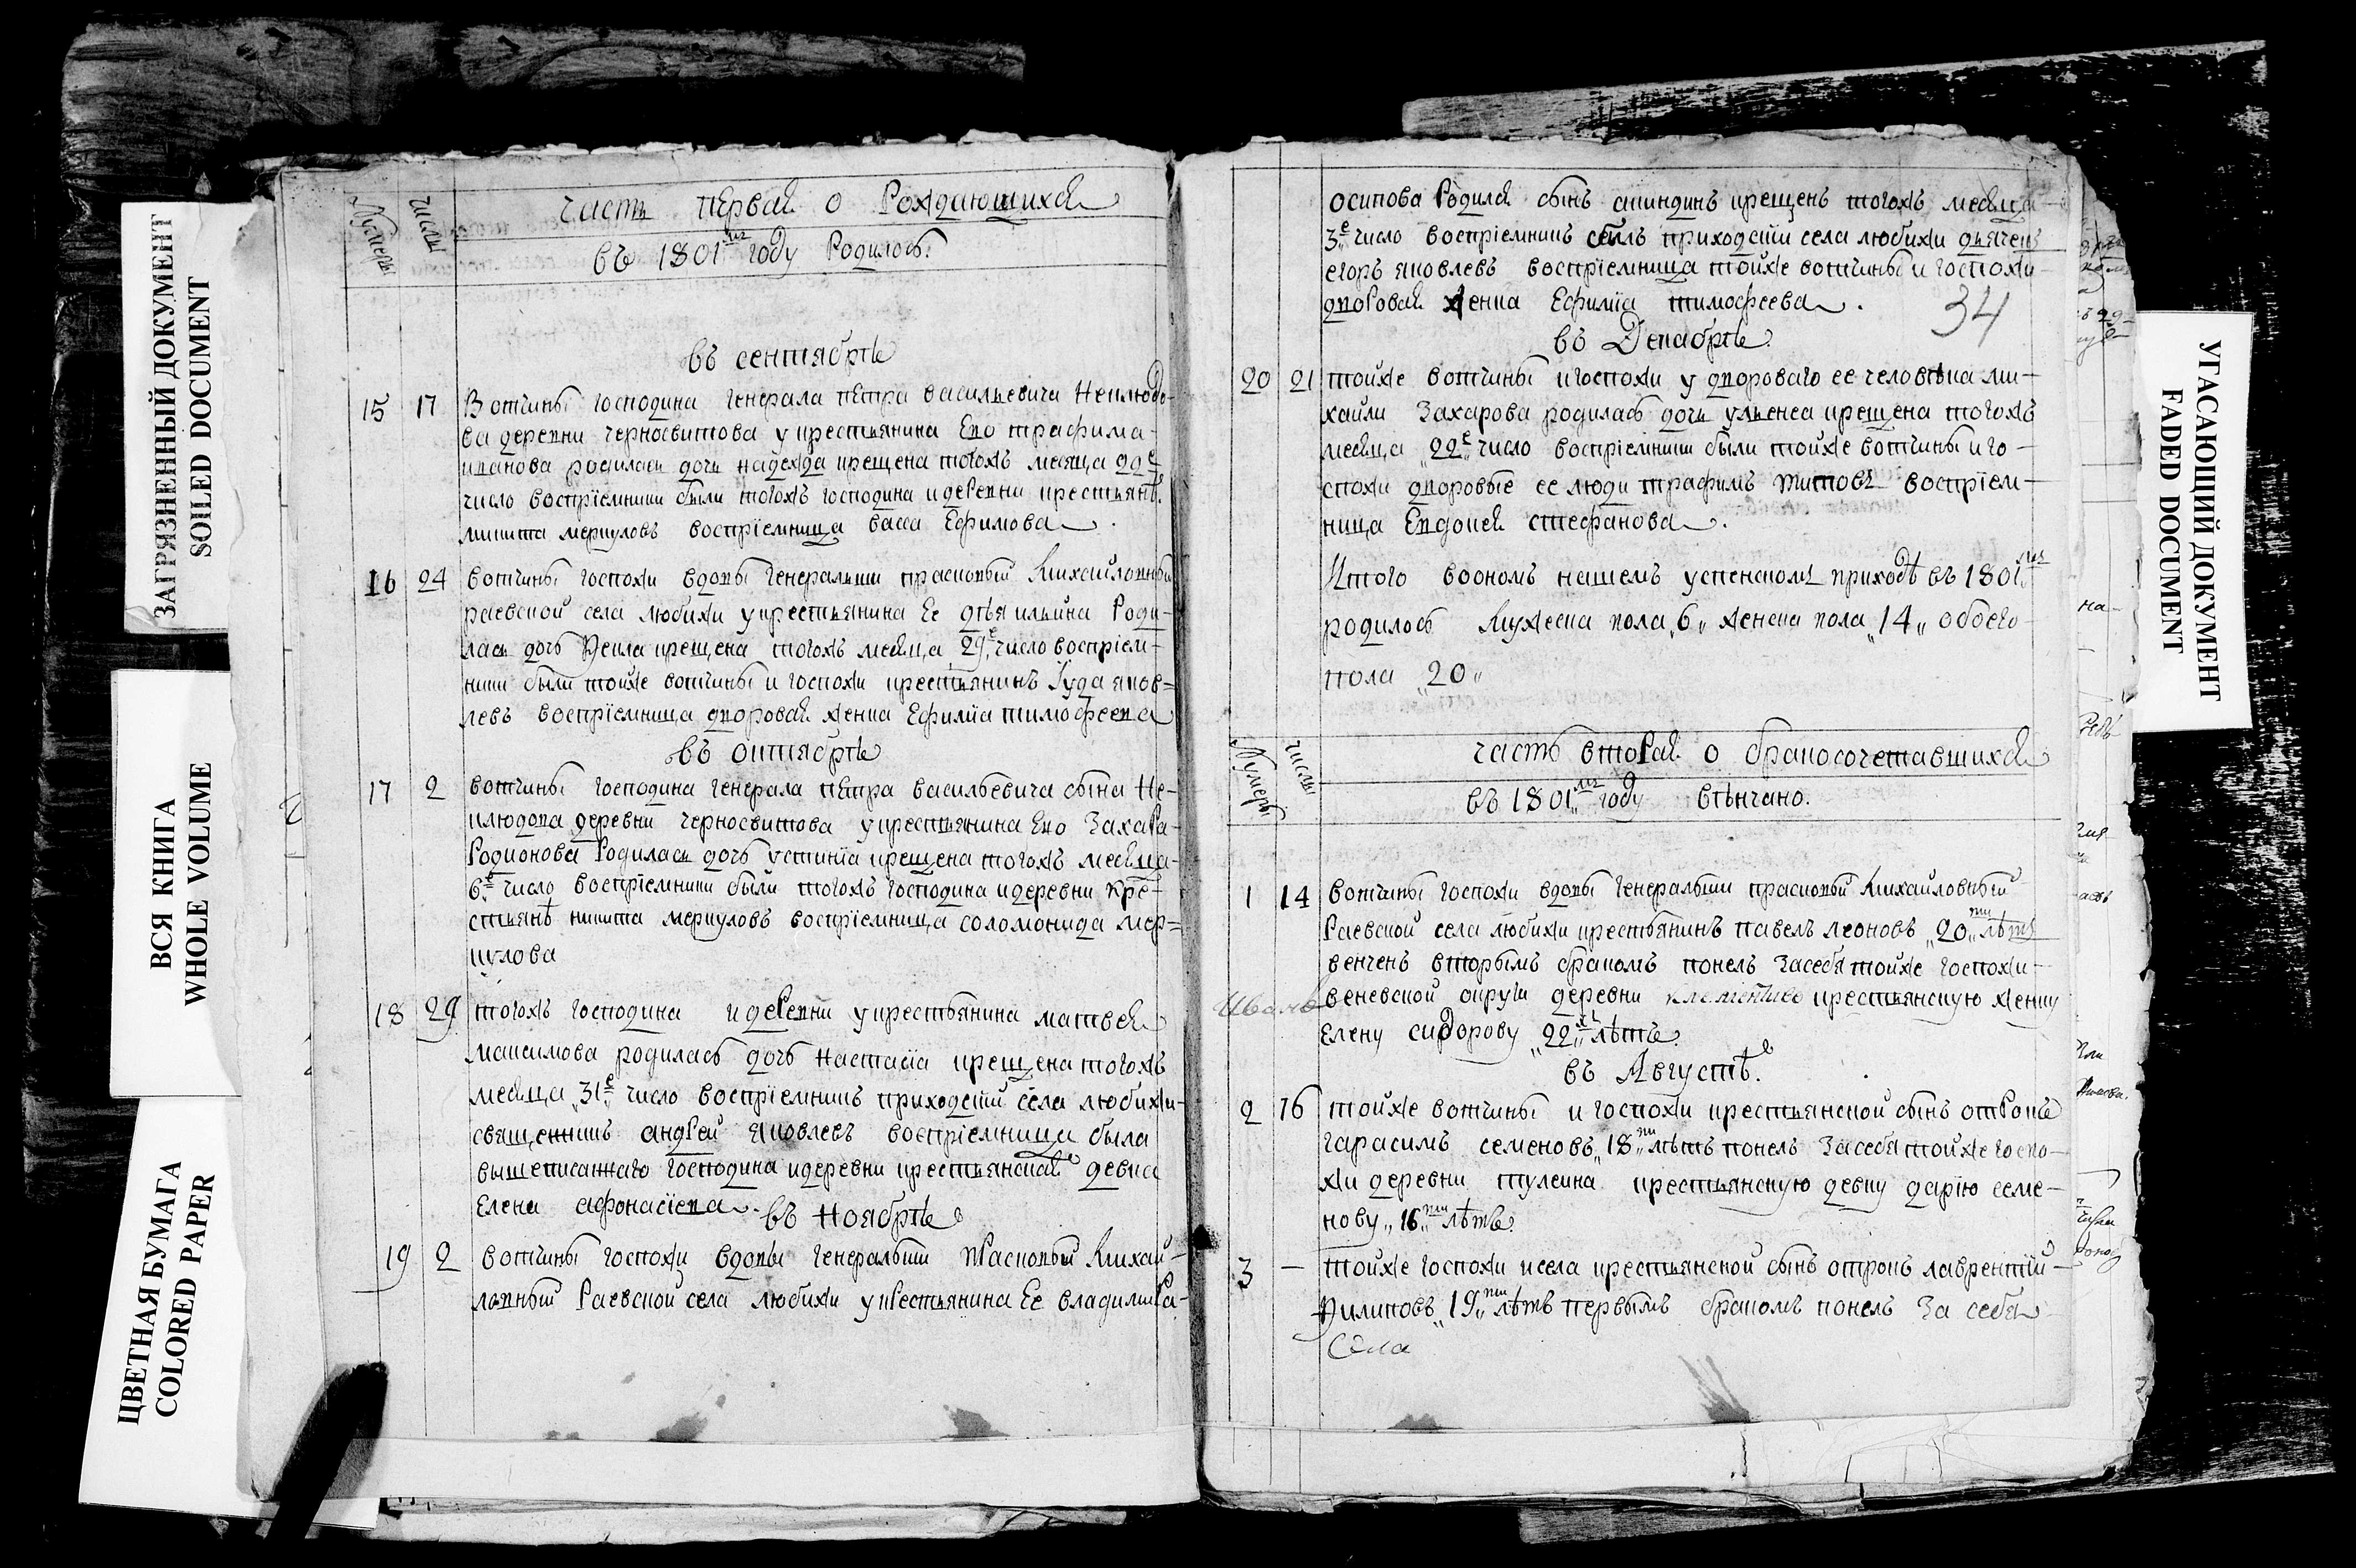 ЗАГРЯЗНЕННЫЙ ДОКУМЕНТ
SOILED DOCUMENT
ВСЯ КНИГА
WHOLE VOLUME
ЦВЕТНАЯ БУМАГА
COLORED PAPER
Нумеры
числы
часть первая о Рождающихся
въ 1801м году Родилось.
въ сентябрѣ
15 17 Вотчины господина генерала пЕтра васильевича Неклюдо-
ва деревни черносвитова у крестьянина Его трафима-
иванова родилась дочь надежда крещена тогожъ месяца 22е
число воспрїемники были тогожъ господина и деревни крестьянъ
никита меркуловъ воспрїемница васса Ефимова.
16 24 вотчины госпожи вдовы генеральши прасковьи Михайловны
раевской села любижи у крестьянина Ее илья ильина Роди-
лась дочь Фекла крещена тогожъ месяца 29е число воспрїем-
ники были тойже вотчины и госпожи крестьянинъ Iуда яков=
левъ воспрїемница дворовая женка Ефимїа тимофеева
въ октябрѣ
17 2 вотчины господина генерала пЕтра васильевича сына Не-
клюдова деревни черносвитова у крестьянина Его Захара-
Родионова Родилась дочь устинїа крещена тогожъ месяца-
6е число воспрїемники были тогожъ господина и деревни кре-
стьянъ никита меркуловъ воспрїемница соломонида мер=
кулова
18 29 тогожъ господина и деревни у крестьянина матвея
максимова родилась дочь настасїа крещена тогожъ
месяца 31е число воспрїемникъ приходскїй села любижи-
священникъ андрей яковлевъ воспрїемница была
вышеписаннаго господина и деревни крестьянская девка
Елена афонасїева. въ Ноябрѣ
19 2 вотчины госпожи вдовы генеральши пРасковьи Михай-
ловны Раевской села любижи у крестьянина Ее владимиРа-
осипова Родился сынъ акиндинъ крещенъ тогожъ месяца-
3е число воспрїемникъ былъ приходскїи села любижи дьячекъ
егоръ яковлевъ воспрїемница тойже вотчины и госпожи-
дворовая женка Ефимїа тимофеева.
34
въ Декабрѣ.
20 21 тойже вотчины и госпожи у дворового ее человѣка ми-
хайли Захарова родилась дочь ульенеа крещена тогожъ
месяца "22е число воспрїемники были тойже вотчины и го-
спожи дворовые ее люди трафимъ титовъ воспрїем-
ница Евдокея стефанова.
Итого воономъ нашемъ успенскомъ приходѣ въ 1801м
родилось Мужеска пола "6" женска пола "14" обоего-
пола "20"
Нумеры
числы
часть втоРая о бракосочетавшихся
въ 1801м году вѣнчано.
1 14 вотчины госпожи вдовы генеральши прасковьи Михайловны
Раевской села любижи крестьянинъ павелъ леоновъ "20" лѣтъ
венченъ вторымъ бракомъ понелъ за себя тойже госпожи-
веневской округи деревни крестьянскую женку
Елену сидорову "22" лѣтъ.
въ Августѣ.
2 16 тойже вотчины и госпожи крестьянской сынъ отРокъ
гарасимъ семеновъ "18" лѣтъ понелъ за себя тойже госпо-
жи деревни тулеина крестьянскую девку дарїю семе-
нову "16" лѣтъ.
3 — тойже госпожи и села крестьянской сынъ отрокъ лаврентїй-
Филиповъ "19" лѣтъ первымъ бракомъ понелъ За себя
Села
УГАСАЮЩИЙ ДОКУМЕНТ
FADED DOCUMENT